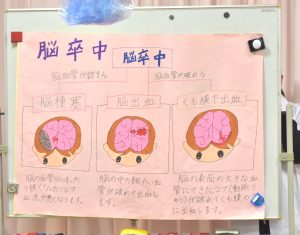 脳卒中
脳卒中
脳血管が詰まる
脳血管が破れる
脳梗塞
脳出血
くも膜下出血
脳の血管がつまったり
り狭くなったりして
血流が無くなります。
脳の中の細かい血
管が破れて出血し
ます。
脳の表面の大きな血
管にできたコブ(動脈り
ゅう)が破れてくも膜の下
に出血します。